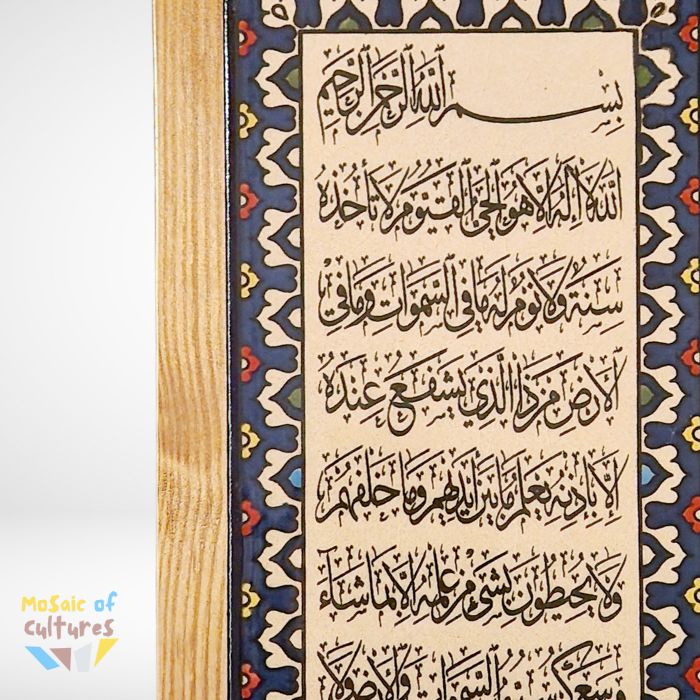 بِسْمِ ٱللَّهِ ٱلرَّحْمَٰنِ ٱلرَّحِيمِ
اللَّهُ لَا إِلَٰهَ إِلَّا هُوَ الْحَيُّ الْقَيُّومُ لَا تَأْخُذُهُ
سِنَةٌ وَلَا نَوْمٌ لَهُ مَا فِي السَّمَوَاتِ وَمَا فِي
الْأَرْضِ مَنْ ذَا الَّذِي يَشْفَعُ عِنْدَهُ
إِلَّا بِإِذْنِهِ يَعْلَمُ مَا بَيْنَ أَيْدِيهِمْ وَمَا خَلْفَهُمْ
وَلَا يُحِيطُونَ بِشَيْءٍ مِنْ عِلْمِهِ إِلَّا بِمَا شَاءَ
السَّمَوَاتِ وَالْأَرْضَ وَلَا
Mosaic of
Cultures